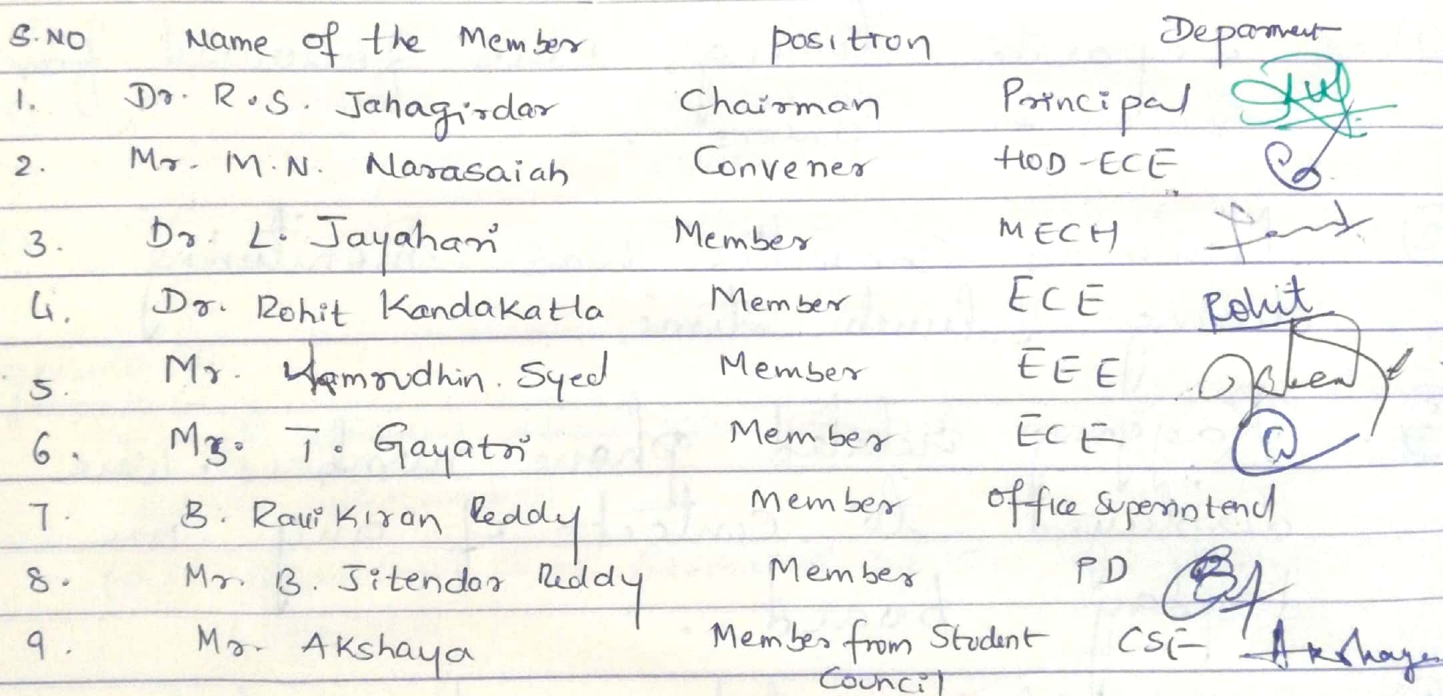 S.NO Name of the Member position Deparment
1. Dr. R.S. Jahagirdar Chairman Principal
2. Mr. M.N. Narasaiah Convener HOD-ECE
3. Dr. L. Jayahari Member MECH
4. Dr. Rohit Kandakatla Member ECE Rohit
5. Mr. Kamrudhin. Syed Member EEE
6. Ms. T. Gayatri Member ECE
7. B. Ravi Kiran Reddy Member office Superintend
8. Mr. B. Jitendar Reddy Member PD
9. Mr. Akshaya Member from Student CSE Akshaya
Council